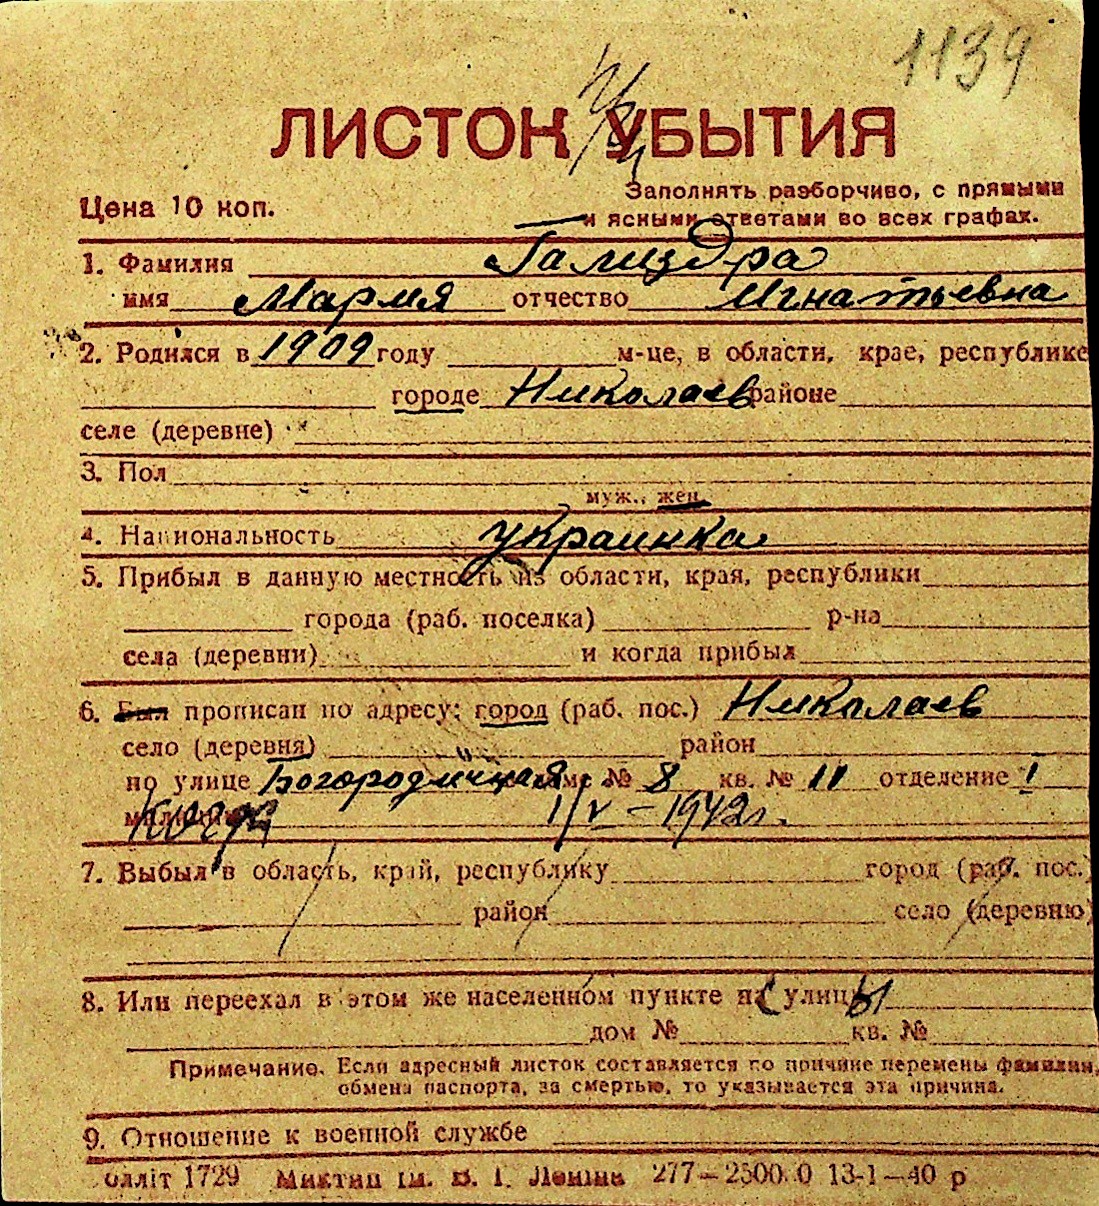 1139
ЛИСТОК УБЫТИЯ
Заполнять разборчиво, с прямыми
Цена 10 коп.
и ясными ответами во всех графах.
1. Фамилия Гализдра
имя Мария отчество Игнатьевна
2. Родился в 1909 году м-це, в области, крае, республике
городе Николаев районе
селе (деревне)
3. Пол
муж., жен.
4. Национальность украинка
5. Прибыл в данную местность из области, края, республики
города (раб. поселка) р-на
села (деревни) и когда прибыл
6. Был прописан по адресу: город (раб. пос.) Николаев
село (деревня) район
по улице Богородичная № 8 кв. № 11 отделение I
когда 1/V – 1942 г.
7. Выбыл в область, край, республику город (раб. пос.)
район село (деревню)
8. Или переехал в этом же населенном пункте на улицы
дом № кв. №
Примечание. Если адресный листок составляется по причине перемены фамилии,
обмена паспорта, за смертью, то указывается эта причина.
9. Отношение к военной службе
1729 ім. В. І. Леніна 277—2500.0 13-1—40 р